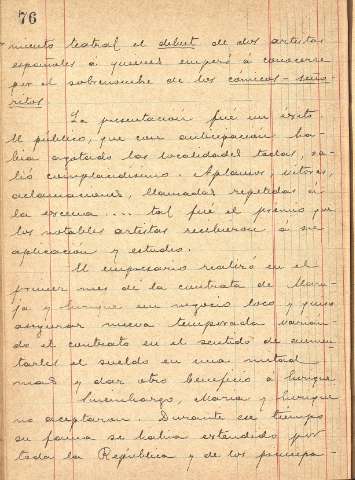 76
miento teatral el debut de dos artistas
españoles á quienes empezó á conocerse
por el sobrenombre de los cómicos-seño-
ritos.
La presentación fué un éxito
El público, que con anticipación ha-
bía agotado las localidades todas, sa-
lió complacidísimo. Aplausos, vítores,
aclamaciones, llamadas repetidas á
la escena .... tal fué el premio que
los notables artistas recibieron á su
aplicación y estudio.
El empresario realizó en el
primer mes de la contrata de Marí-
a y Enrique un negocio loco y quiso
asegurar nueva temporada varian-
do el contrato en el sentido de aumen-
tarles el sueldo en una mitad
mas y dar otro beneficio á Enrique
Sinembargo, María y Enrique
no aceptaron. Durante ese tiempo
su fama se había extendido por
toda la República y de los principa-